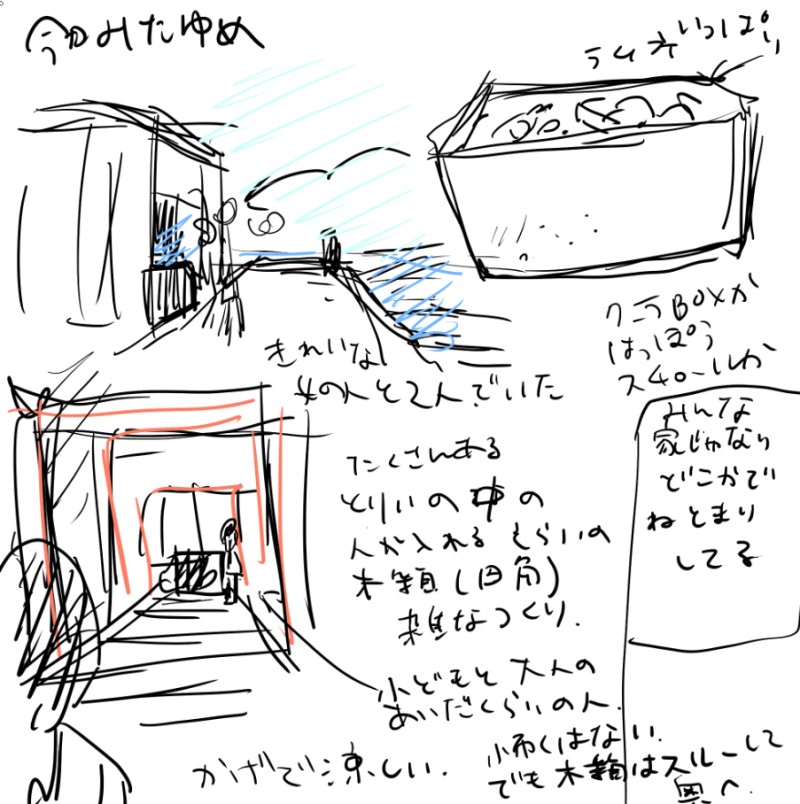 今日みたゆめ
ライオいっぱい
クーラBOXか
はっぽう
スチロールか
きれいな
女の人と2人でいた
みんな
家じゃなく
どこかで
ねとまり
してる
たくさんある
とりいの中の
人が入れるくらいの
木箱(四角)
雑なつくり.
小どもと大人の
あいだくらいの人.
怖くはない.
でも木箱はスルーして
奥へ.
かげで涼しい.